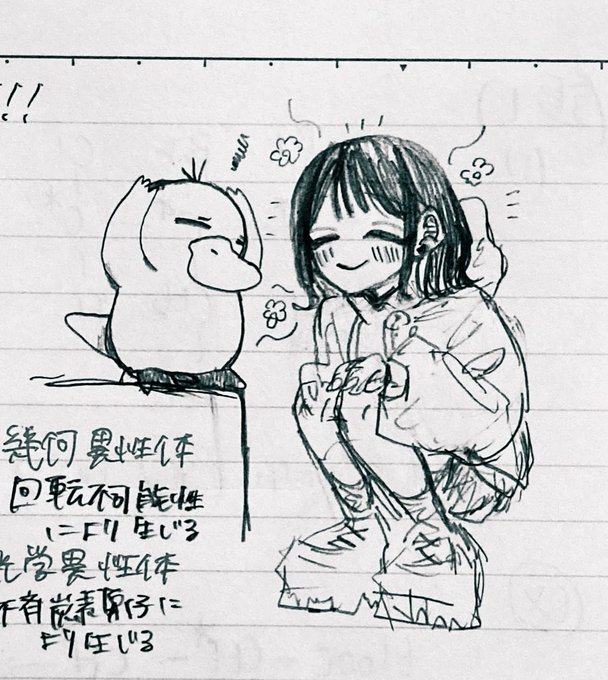 !!!
幾何異性体
回転不可能性
により生じる
光学異性体
不斉炭素原子に
より生じる